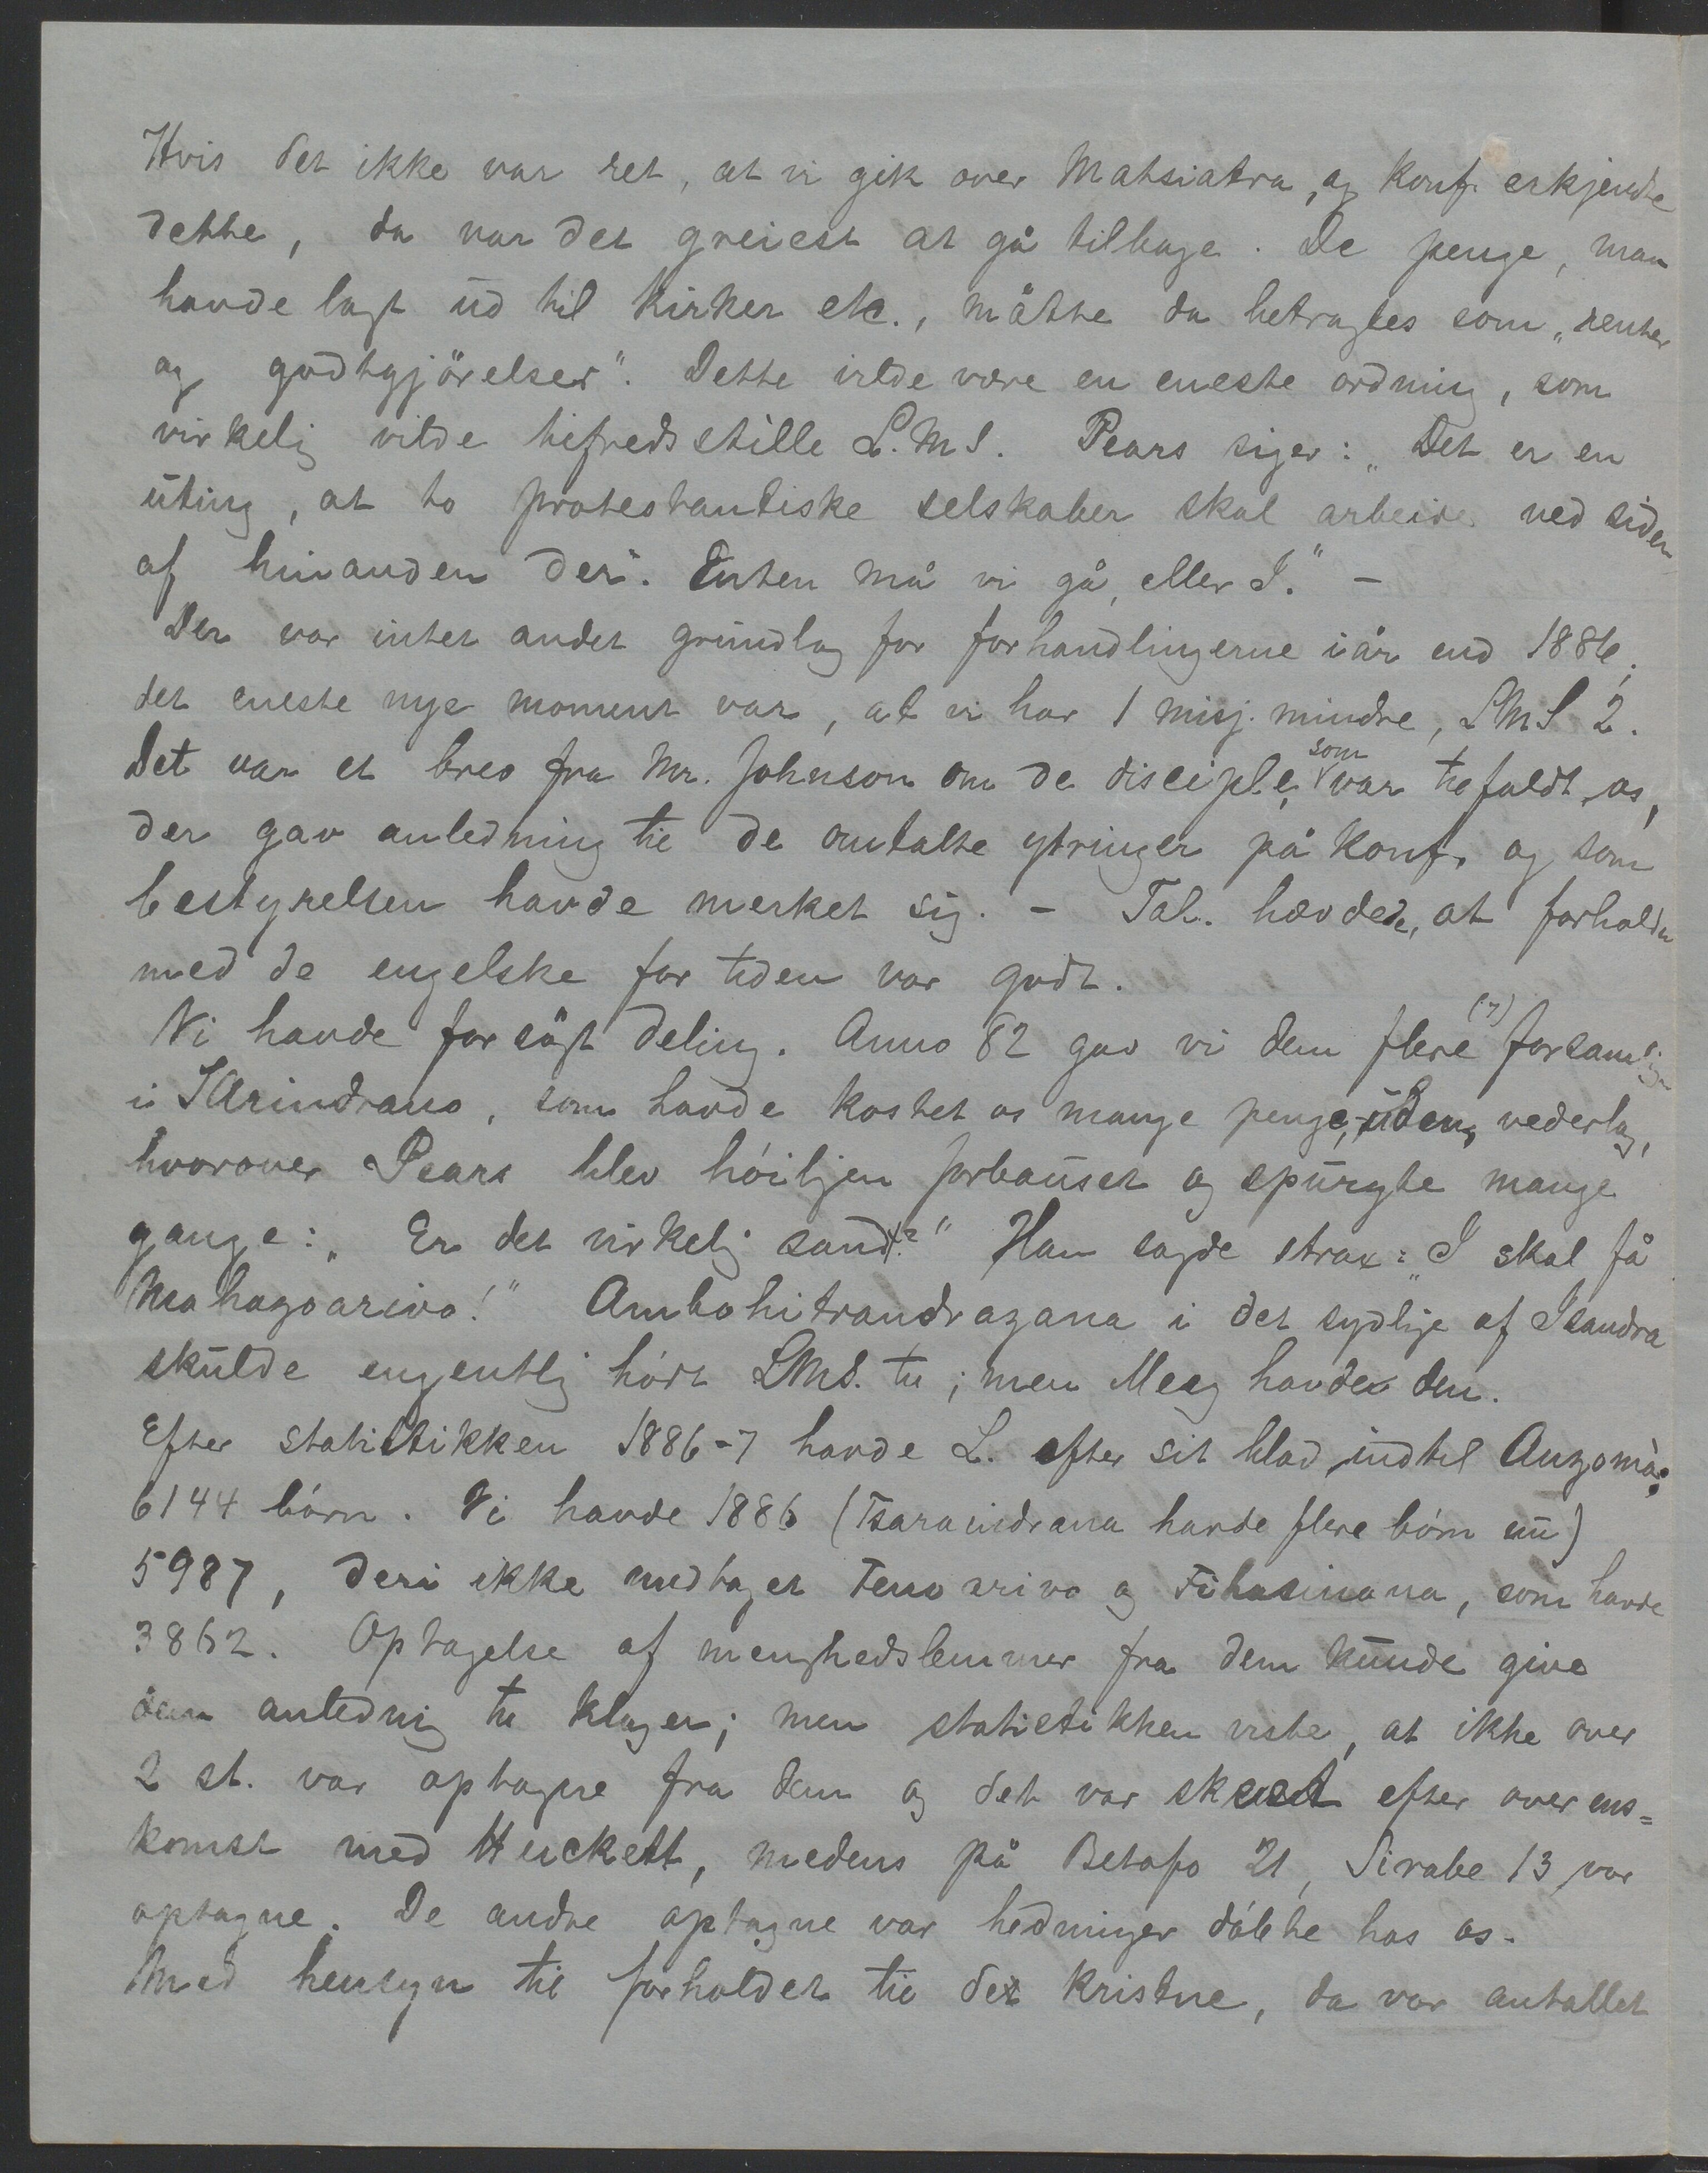 Hvis det ikke var ret, at vi gik over Matsiatra, og konf. erkjendte
dette, da var det greiest at gå tilbage. De penge, man
havde lagt ud til kirker etc., måtte da betragtes som „renter
og godtgjörelser“. Dette vilde være en eneste ordning, som
virkelig vilde tilfredsstille L.M.S. Pears siger: „Det er en
uting, at to protestantiske selskaber skal arbeide ved siden
af hinanden der. Enten må vi gå, eller I.“ –
Der var intet andet grundlag for forhandlingerne iår end 1886;
det eneste nye moment var, at vi har 1 misj. mindre, LMS 2.
Det var et brev fra Mr. Johnson om de disciple, som var tilfaldt os,
der gav anledning til de omtalte ytringer på konf. og som
bestyrelsen havde merket sig. – Tal. hævdede, at forholdet
med de engelske for tiden var godt.
Vi havde forsögt deling. Anno 82 gav vi dem flere (7) forsamlinger
i IArindrano, som havde kostet os mange penge, uden vederlag,
hvorover Pears blev höiligen forbauset og spurgte mange
gange: „Er det virkelig sandt?“ Han sagde strax: „I skal få
Mahazoarivo!“ Ambohitrandrazana i det sydlige af Isandra
skulde egentlig hört LMS. til; men Meeg havde den.
Efter statistikken 1886-7 havde L. efter sit blad indtil Anzomà:
6144 börn. Vi havde 1886 (Tsaraindrana havde flere börn nu)
5987, deri ikke medtaget Fenoarivo og Fihasinana, som havde
3862. Optagelse af menighedslemmer fra dem kunde give
dem anledning til klager; men statistikken viste, at ikke over
2 st. var optagne fra dem og det var skeet efter overens=
komst med Huckett, medens på Betafo 21, Sirabe 13 var
optagne. De andre optagne var hedninger döbte hos os.
Med hensyn til forholdet til de kristne, da var antallet